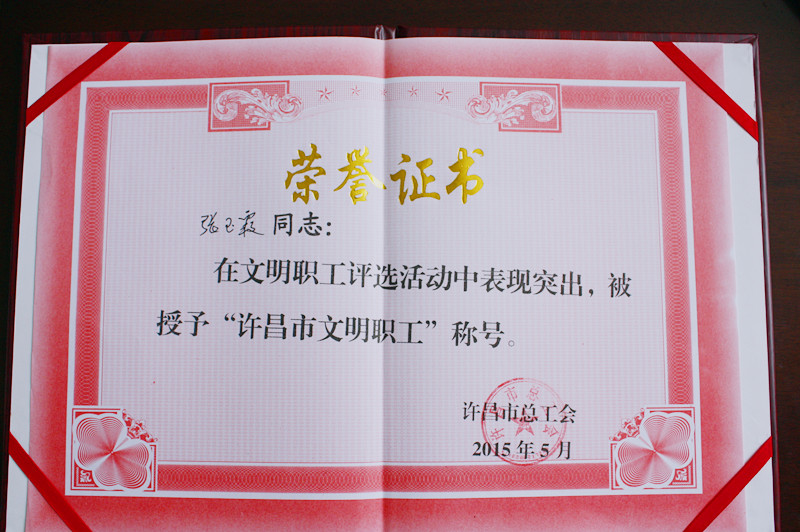 荣誉证书
张玉霞 同志：
在文明职工评选活动中表现突出，被
授予“许昌市文明职工”称号。
许昌市总工会
2015 年 5 月